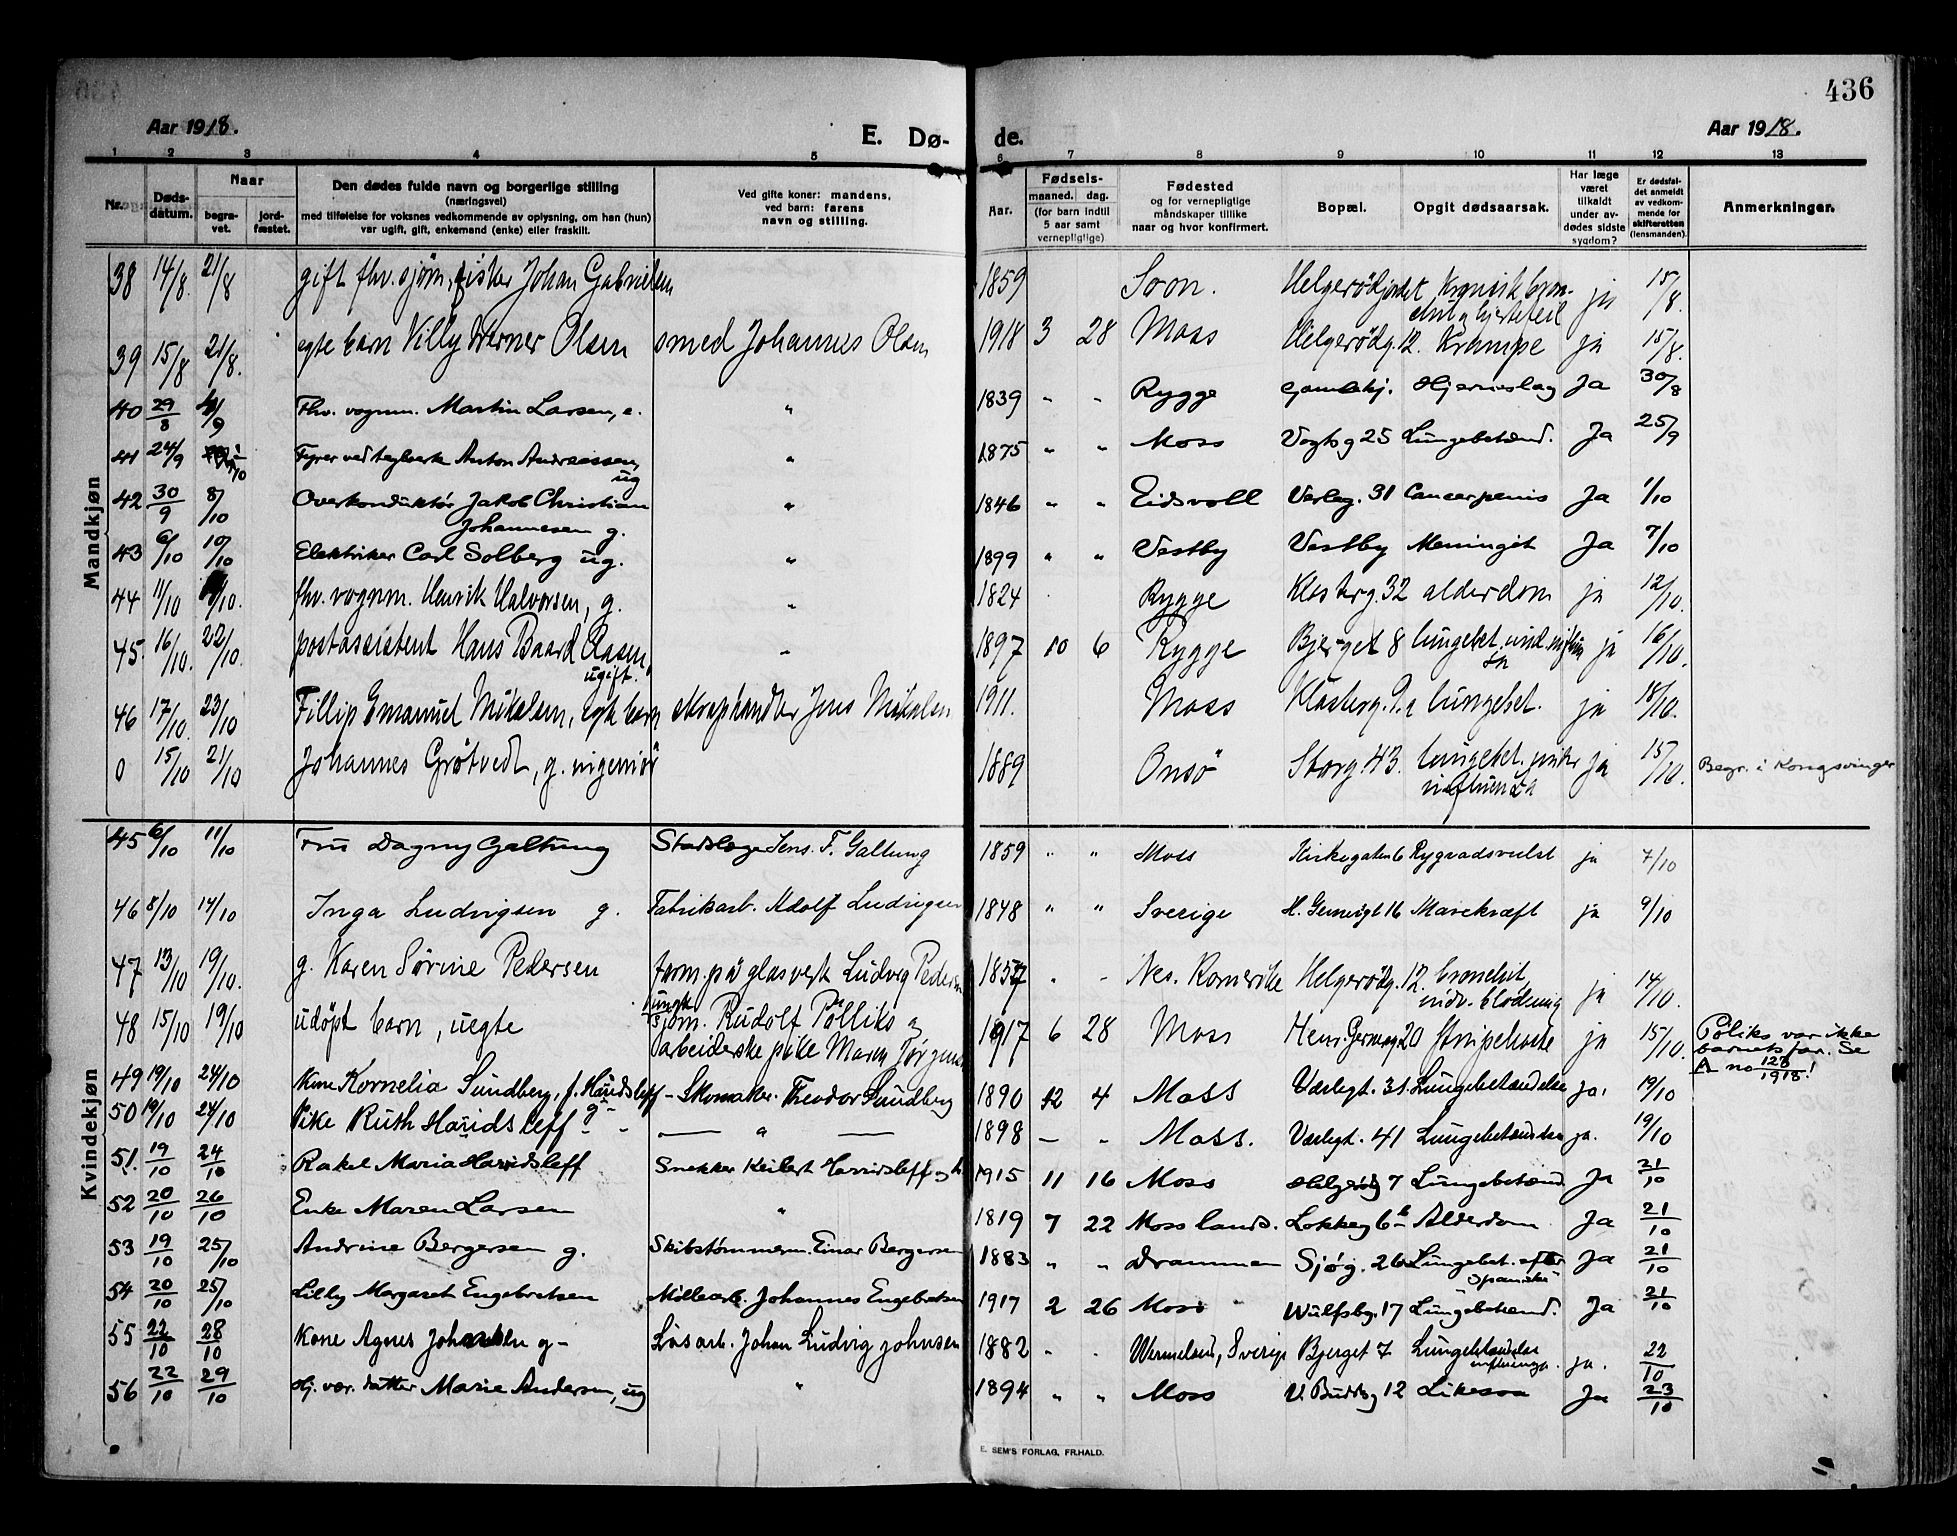 436
Aar 1918. E. Dø- de. Aar 1918.
1 2 3 4 5 6 7 8 9 10 11 12 13
Nr. Døds-datum. Naar begra-vet. jord-fæstet. Den dødes fulde navn og borgerlige stilling (næringsvei) med tilføielse for voksnes vedkommende av oplysning, om han (hun) var ugift, gift, enkemand (enke) eller fraskilt. Ved gifte koner: mandens, ved barn: farens navn og stilling. Aar. Fødsels- maaned. dag. (for barn indtil 5 aar samt vernepligtige) Fødested og for vernepligtige måndskaper tillike naar og hvor konfirmert. Bopæl. Opgit dødsaarsak. Har læge været tilkaldt under av-dødes sidste sygdom? Er dødsfal-det anmeldt av vedkom-mende for skifteretten (lensmanden). Anmerkninger.
Mandkjøn
38 14/8. 21/8 gift fhv. sjøm, fisker Johan Gabrielsen 1859 Soon. Helgerødjordet Kronisk bron-
chit og hjertefeil ja 15/8.
39 15/8 21/8. egte barn Villy Werner Olsen smed Johannes Olsen 1918 3 28 Moss Helgerødg. 12. Krampe ja 15/8.
40 29/8 4/9 Fhv. vognm. Martin Larsen, e. " 1839 " " Rygge Gamlehj. Hjerneslag Ja 30/8
41 24/9 1/10 Fyrer ved teglverk Anton Andreassen, ug " 1875 " " Moss Vogts g 25 Lungebetænd. Ja 25/9
42 30/9 8/10 Overkonduktør Jakob Christian
Johannesen g. " 1846 " " Eidsvoll Værleg. 31 Cancer penis Ja 1/10
43 6/10 10/10 Elektriker Carl Solberg ug. " 1899 " " Vestby Vestby Meningit Ja 7/10
44 11/10 /10. fhv. vognm. Henrik Halvorsen, g. " 1824 Rygge Klosterg. 32 alderdom ja 12/10.
45. 16/10. 22/10. postassistent Hans Baard Aasen, ugift. " 1897 10 6 Rygge Bjerget 8 lungebet. ja 16/10.
46 17/10. 23/10 Fillip Emanuel Mikalsen, egte barn skraphandler Jens Mikalsen 1911. Moss Klosterg. 9a lungebet. ja 18/10.
0 15/10 21/10 Johannes Grøtvedt, g. ingeniør 1889 Onsø Storg. 43. lungebet.
influenza ja 15/10. Begr. i Kongsvinger
Kvindekjøn
45 6/10 11/10 Fru Dagny Galtung Stadslæge Jens. F. Galtung 1859 " " Moss Kirkegaten 6 Rygradsvulst ja 7/10
46 8/10 14/10 Inga Ludvigsen g. Fabrikarb. Adolf Ludvigsen 1848 " " Sverige H. Gernersgt 16 Mavekræft ja 9/10
47 13/10 19/10. g. Karen Sørine Pedersen form. på glasverk Ludvig Pedersen 1857 " " Nes. Romerike Helgerødg. 12. bronchit
indv. blødning ja 14/10.
48 15/10 19/10 udøpt barn, uegte ungk. sjøm. Rudolf Polliks og
arbeiderske pike Maren Jørgensen 1917 6 28 Moss Henr. Gernersg 20 strupehoste ja 15/10. Poliks var ikke
barnets far. Se
A no 128/1918!
49 19/10 24/10 Kone Kornelia Sundberg, f. Haridsleff g- Skomaker. Theodor Sundberg 1890 12 4 Moss Værlegt. 31. Lungebetændelse ja. 19/10
50 19/10 24/10 Pike Ruth Haridsleff " 1898 — " Moss. Værlegt. 41 Lungebetændelse ja. 19/10
51. 19/10 24/10 Rakel Maria Haridsleff Snekker Keilert Harridsleff og h. 1915 11 16 Moss Helgerødg 7 Lungebetænd. Ja 21/10
52 20/10 26/10 Enke Maren Larsen " 1819 7 22 Moss lands. Løkkeg 6b Alderdom Ja 21/10
53 19/10 25/10 Andrine Bergersen g. Skibstømmerm. Einar Bergersen 1883 " " Drammen Sjøg. 26 Lungebet. efter
spanske Ja 21/10
54 20/10 25/10 Lilly Margaret Engebretsen Møllearb. Johannes Engebretsen 1917 2 26 Moss Wulfsbg. 17 Lungebetænd. Ja 21/10
55 22/10 28/10 Kone Agnes Johnsen g- Løsarb. Johan Ludvig Johnsen 1882 " " Wermeland, Sverige Bjerget 7 Lungebetændelse
influenza. ja. 22/10
56 22/10 29/10 Hj. vær. datter Marie Andersen, ug " 1894 " " Moss V. Buddeg 12 Likesaa Ja 23/10
E. SEM'S FORLAG, FR.HALD.